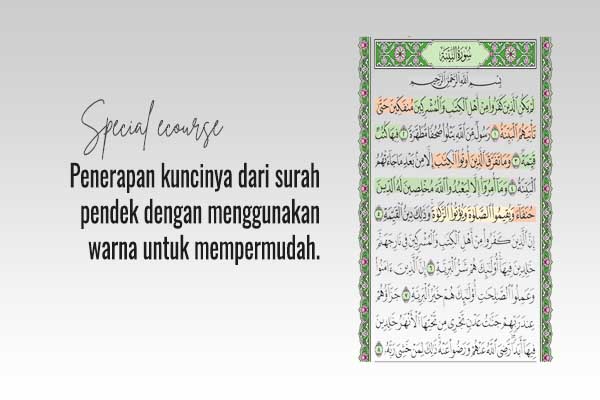 Special ecourse
Penerapan kuncinya dari surah
pendek dengan menggunakan
warna untuk mempermudah.
سُورَةُ الْبَيِّنَةِ
بِسْمِ اللَّهِ الرَّحْمَٰنِ الرَّحِيمِ
لَمْ يَكُنِ الَّذِينَ كَفَرُوا مِنْ أَهْلِ الْكِتَٰبِ وَالْمُشْرِكِينَ مُنفَكِّينَ حَتَّىٰ
تَأْتِيَهُمُ الْبَيِّنَةُ ١ رَسُولٌ مِّنَ اللَّهِ يَتْلُوا صُحُفًا مُّطَهَّرَةً ٢ فِيهَا كُتُبٌ
قَيِّمَةٌ ٣ وَمَا تَفَرَّقَ الَّذِينَ أُوتُوا الْكِتَٰبَ إِلَّا مِن بَعْدِ مَا جَاءَتْهُمُ
الْبَيِّنَةُ ٤ وَمَا أُمِرُوا إِلَّا لِيَعْبُدُوا اللَّهَ مُخْلِصِينَ لَهُ الدِّينَ
حُنَفَاءَ وَيُقِيمُوا الصَّلَوٰةَ وَيُؤْتُوا الزَّكَوٰةَ وَذَٰلِكَ دِينُ الْقَيِّمَةِ ٥
إِنَّ الَّذِينَ كَفَرُوا مِنْ أَهْلِ الْكِتَٰبِ وَالْمُشْرِكِينَ فِي نَارِ جَهَنَّمَ
خَٰلِدِينَ فِيهَا أُولَٰئِكَ هُمْ شَرُّ الْبَرِيَّةِ ٦ إِنَّ الَّذِينَ ءَامَنُوا
وَعَمِلُوا الصَّٰلِحَٰتِ أُولَٰئِكَ هُمْ خَيْرُ الْبَرِيَّةِ ٧ جَزَاؤُهُمْ
عِندَ رَبِّهِمْ جَنَّٰتُ عَدْنٍ تَجْرِي مِن تَحْتِهَا الْأَنْهَٰرُ خَٰلِدِينَ
فِيهَا أَبَدًا رَّضِيَ اللَّهُ عَنْهُمْ وَرَضُوا عَنْهُ ذَٰلِكَ لِمَنْ خَشِيَ رَبَّهُ ٨